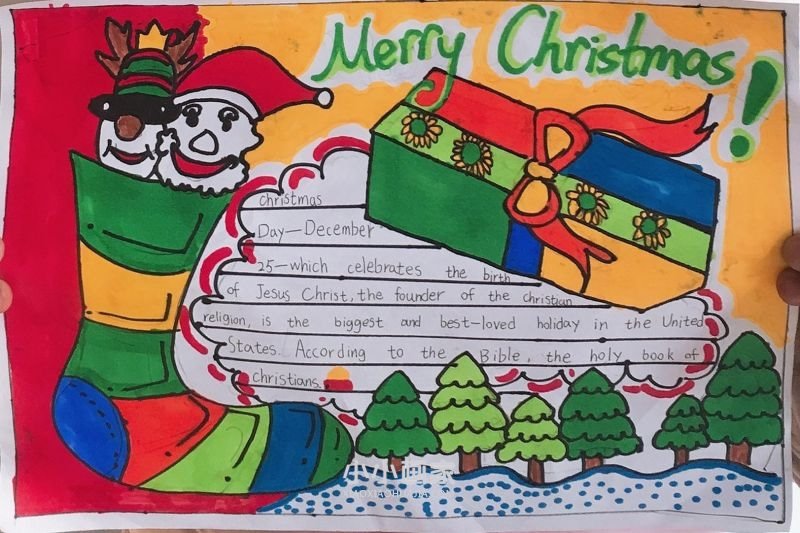 Merry Christmas!
christmas
Day—December
25—which celebrates the birth
of Jesus Christ, the founder of the christian
religion, is the biggest and best-loved holiday in the United
States. According to the Bible, the holy book of
christians.
小小画家